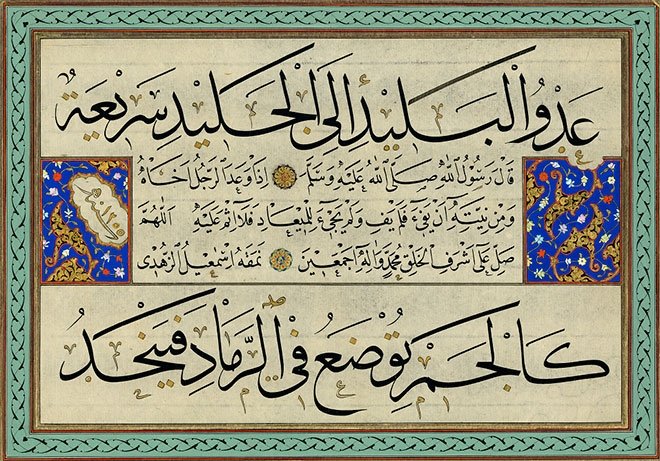 عدو البليد الى الجليد سريعة
قال رسول الله صلى الله عليه وسلم اذا وعد الرجل اخاه
ومن نيته ان يفيء فلم يف ولم يجيء للميعاد فلا اثم عليه اللهم
صل على اشرف الخلق محمد واله اجمعين نمقه اسمعيل الزهدى
كالجمر يوضع فى الرماد فيخمد